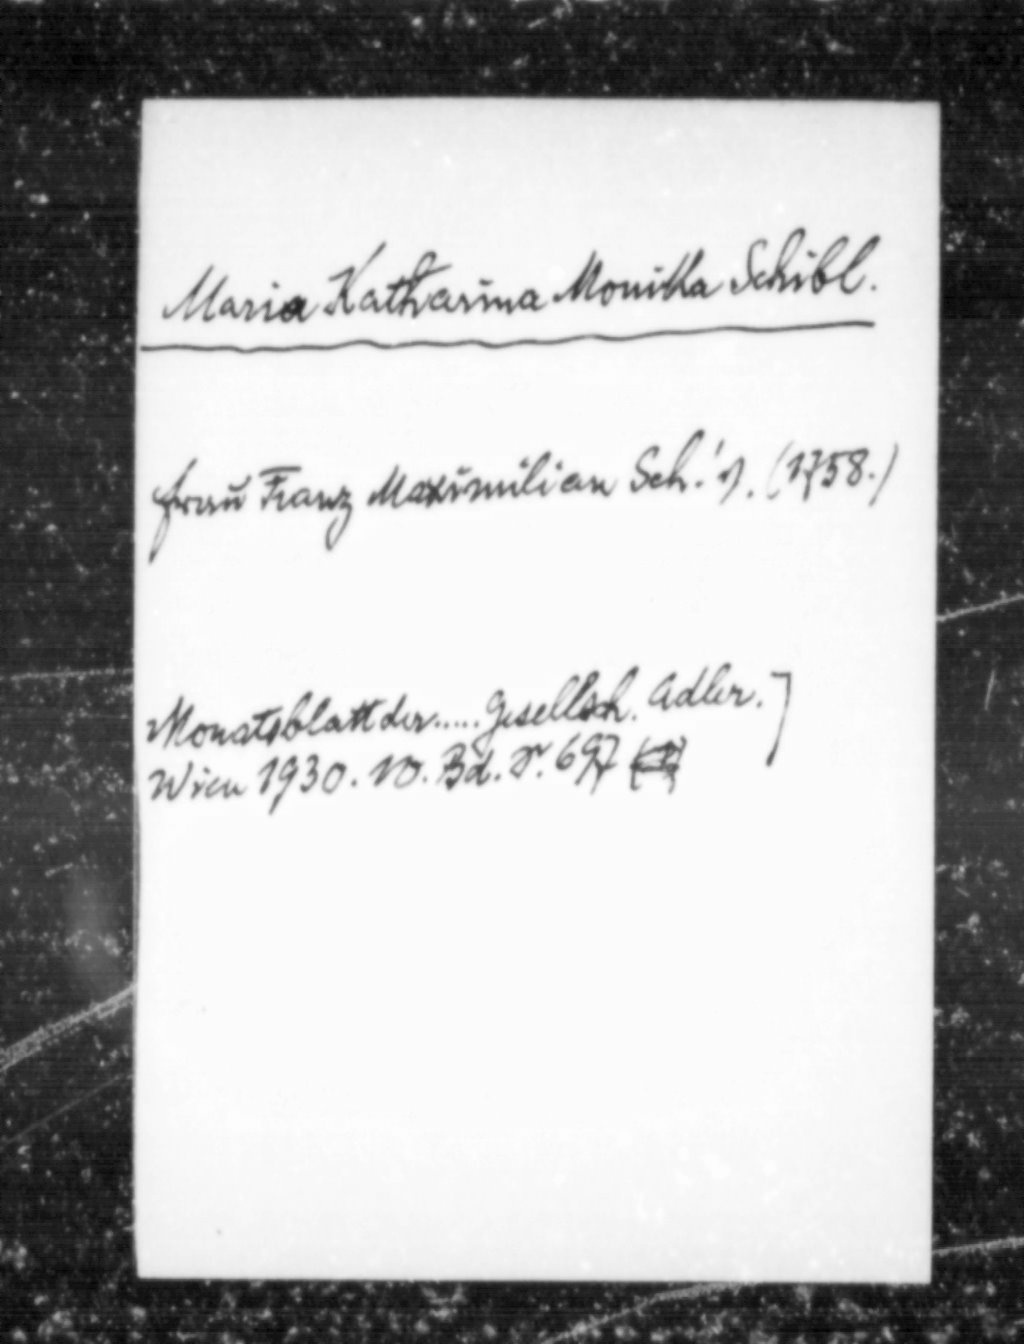 Maria Katharina Monika Schibl.
Frau Franz Maximilian Sch.'s. (1758.)
Monatsblatt der..... Gesellsch. Adler.]
Wien 1930. 10. Bd. S. 697